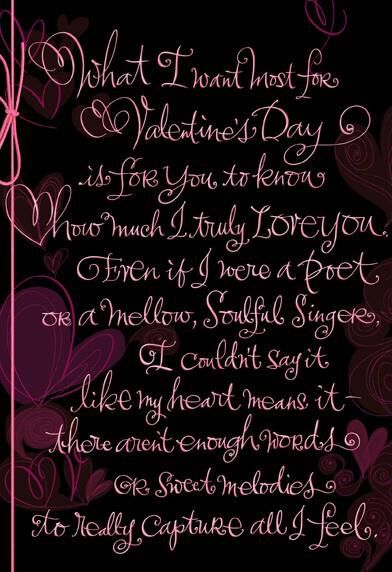 What I want most for
Valentine's Day
is for you to know
how much I truly Love you.
Even if I were a Poet
or a mellow, Soulful Singer,
I couldn't say it
like my heart means it–
there aren't enough words
or sweet melodies
to really capture all I feel.